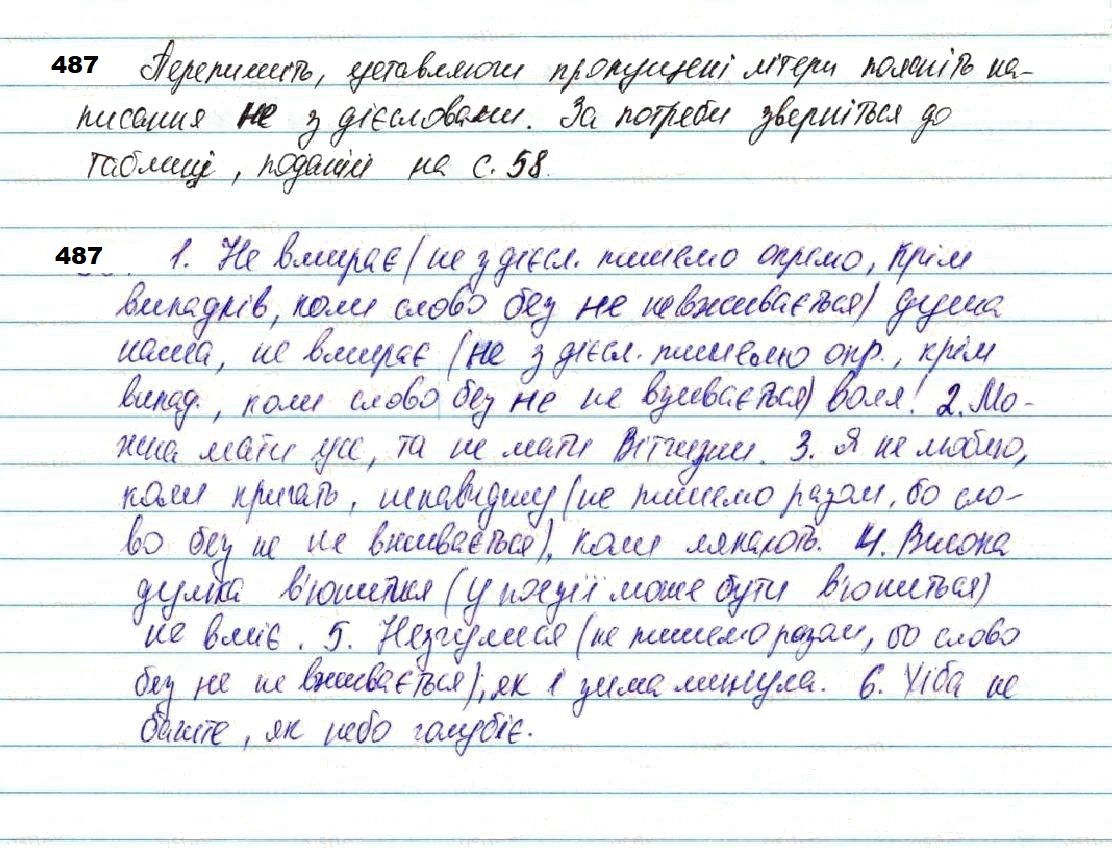 487 Перепишіть, уставляючи пропущені літери поясніть на-
писання не з дієсловами. За потреби зверніться до
таблиці, поданій на с. 58.
487 1. Не вмирає (не з дієсл. пишемо окремо, крім
випадків, коли слово без не невживається) душа
наша, не вмирає (не з дієсл. пишемо окр., крім
випад., коли слово без не не вживається) воля! 2. Мо-
жна мати усе, та не мати Вітчизни. 3. Я не люблю,
коли кричать, ненавиджу (не пишемо разом, бо сло-
во без не не вживається), коли лякають. 4. Висока
думка в'юниться (у поезії може бути в'юниться)
не вміє. 5. Незчулися (не пишемо разом, бо слово
без не не вживається), як і зима минула. 6. Хіба не
бачите, як небо голубіє.